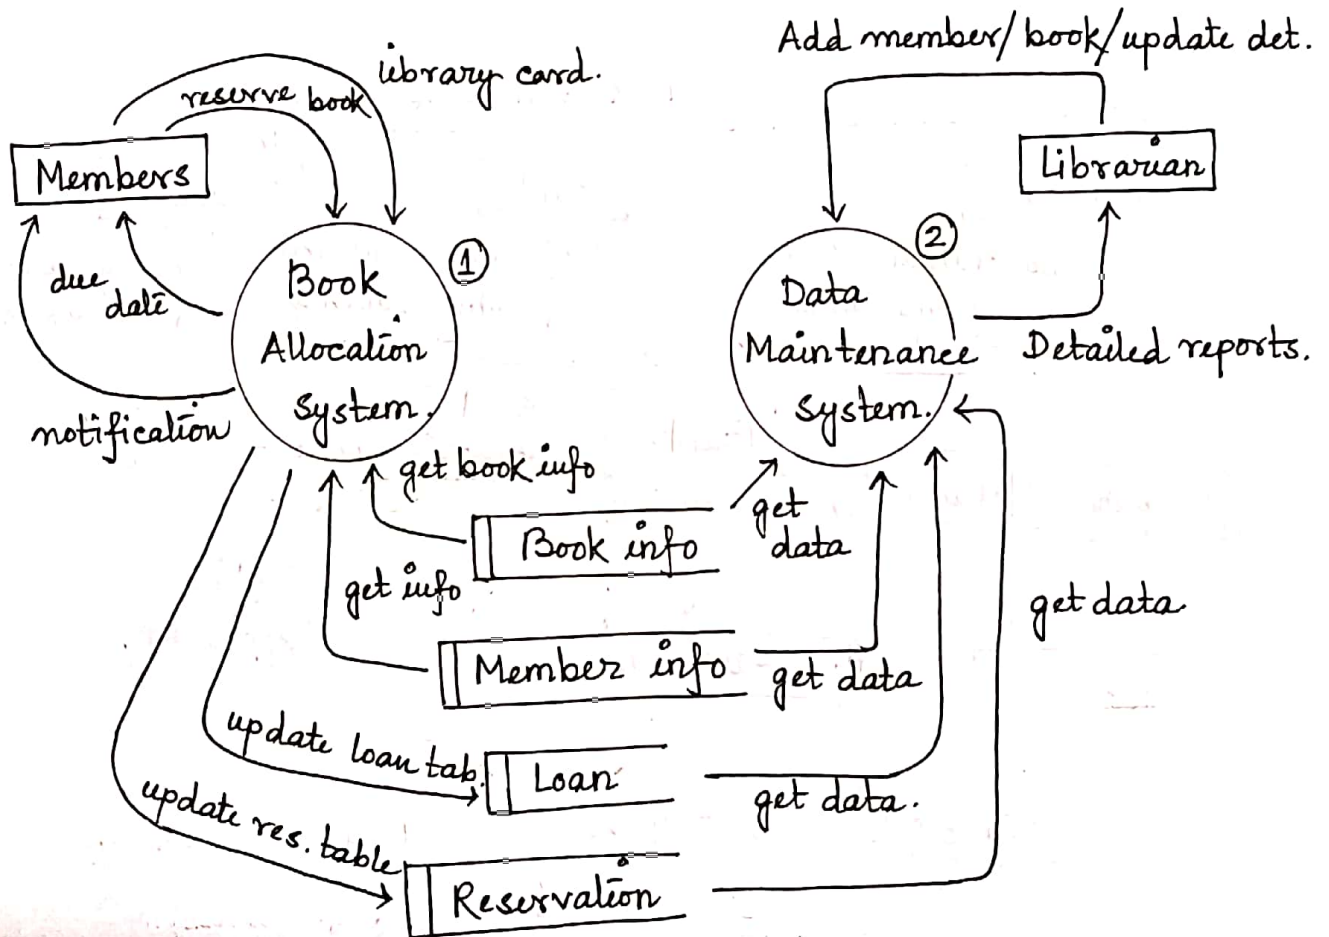 Add member/book/update det.
library card.
reserve book
Members
Librarian
1
2
due
date
Book
Allocation
System.
Data
Maintenance
System.
Detailed reports.
notification
get book info
get
data
Book info
get info
get data
Member info
get data
update loan tab.
Loan
get data.
update res. table
Reservation